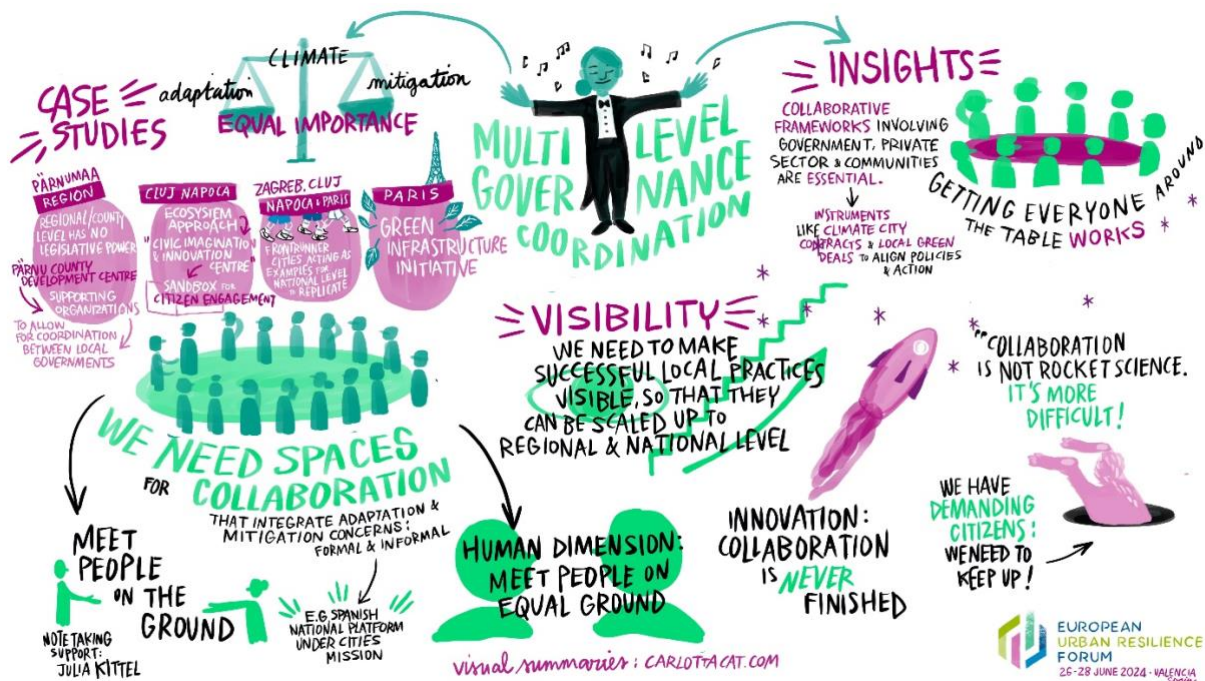 CASE
STUDIES
CLIMATE
adaptation
mitigation
EQUAL IMPORTANCE
PÄRNUMAA
REGION
REGIONAL/COUNTY
LEVEL HAS NO
LEGISLATIVE POWER
PÄRNU COUNTY
DEVELOPMENT CENTRE
SUPPORTING
ORGANIZATIONS
TO ALLOW
FOR COORDINATION
BETWEEN LOCAL
GOVERNMENTS
CLUJ NAPOCA
ECOSYSTEM
APPROACH
"CIVIC IMAGINATION
& INNOVATION
CENTRE"
SANDBOX FOR
CITIZEN ENGAGEMENT
ZAGREB, CLUJ
NAPOCA & PARIS
FRONTRUNNER
CITIES ACTING AS
EXAMPLES FOR
NATIONAL LEVEL
TO REPLICATE
PARIS
GREEN
INFRASTRUCTURE
INITIATIVE
MULTI LEVEL
GOVERNANCE
COORDINATION
INSIGHTS
COLLABORATIVE
FRAMEWORKS INVOLVING
GOVERNMENT, PRIVATE
SECTOR & COMMUNITIES
ARE ESSENTIAL.
INSTRUMENTS
LIKE CLIMATE CITY
CONTRACTS & LOCAL GREEN
DEALS TO ALIGN POLICIES
& ACTION
GETTING EVERYONE AROUND
THE TABLE WORKS
VISIBILITY
WE NEED TO MAKE
SUCCESSFUL LOCAL PRACTICES
VISIBLE, SO THAT THEY
CAN BE SCALED UP TO
REGIONAL & NATIONAL LEVEL
"COLLABORATION
IS NOT ROCKET SCIENCE.
IT'S MORE
DIFFICULT!
WE HAVE
DEMANDING
CITIZENS:
WE NEED TO
KEEP UP!
WE NEED SPACES
FOR COLLABORATION
THAT INTEGRATE ADAPTATION &
MITIGATION CONCERNS:
FORMAL & INFORMAL
MEET
PEOPLE
ON THE
GROUND
E.G. SPANISH
NATIONAL PLATFORM
UNDER CITIES
MISSION
HUMAN DIMENSION:
MEET PEOPLE ON
EQUAL GROUND
INNOVATION:
COLLABORATION
IS NEVER
FINISHED
NOTE TAKING
SUPPORT:
JULIA KITTEL
visual summaries: CARLOTTACAT.COM
EUROPEAN
URBAN RESILIENCE
FORUM
26-28 JUNE 2024 - VALENCIA